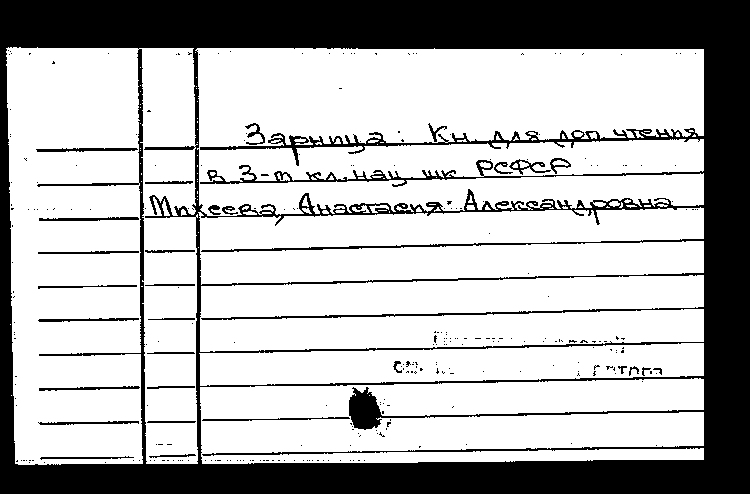 Зарница: Кн. для доп. чтения
в 3-м кл. нац. шк. РСФСР
Михеева, Анастасия Александровна
см.